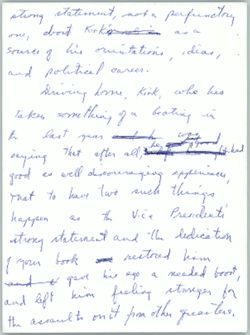 strong statement, not a perfunctory
one, about Kirk as a
source of his orientations, ideas,
and political career.
Driving home, Kirk, who has
taken something of a beating in
the last year
saying that after all
good as well discouraging experiences,
that to have two such things
happen as the Vice President's
strong statement and the dedication
of your book restored him
gave his ego a needed boost,
and left him feeling stronger for
the assaults on it from other quarters.